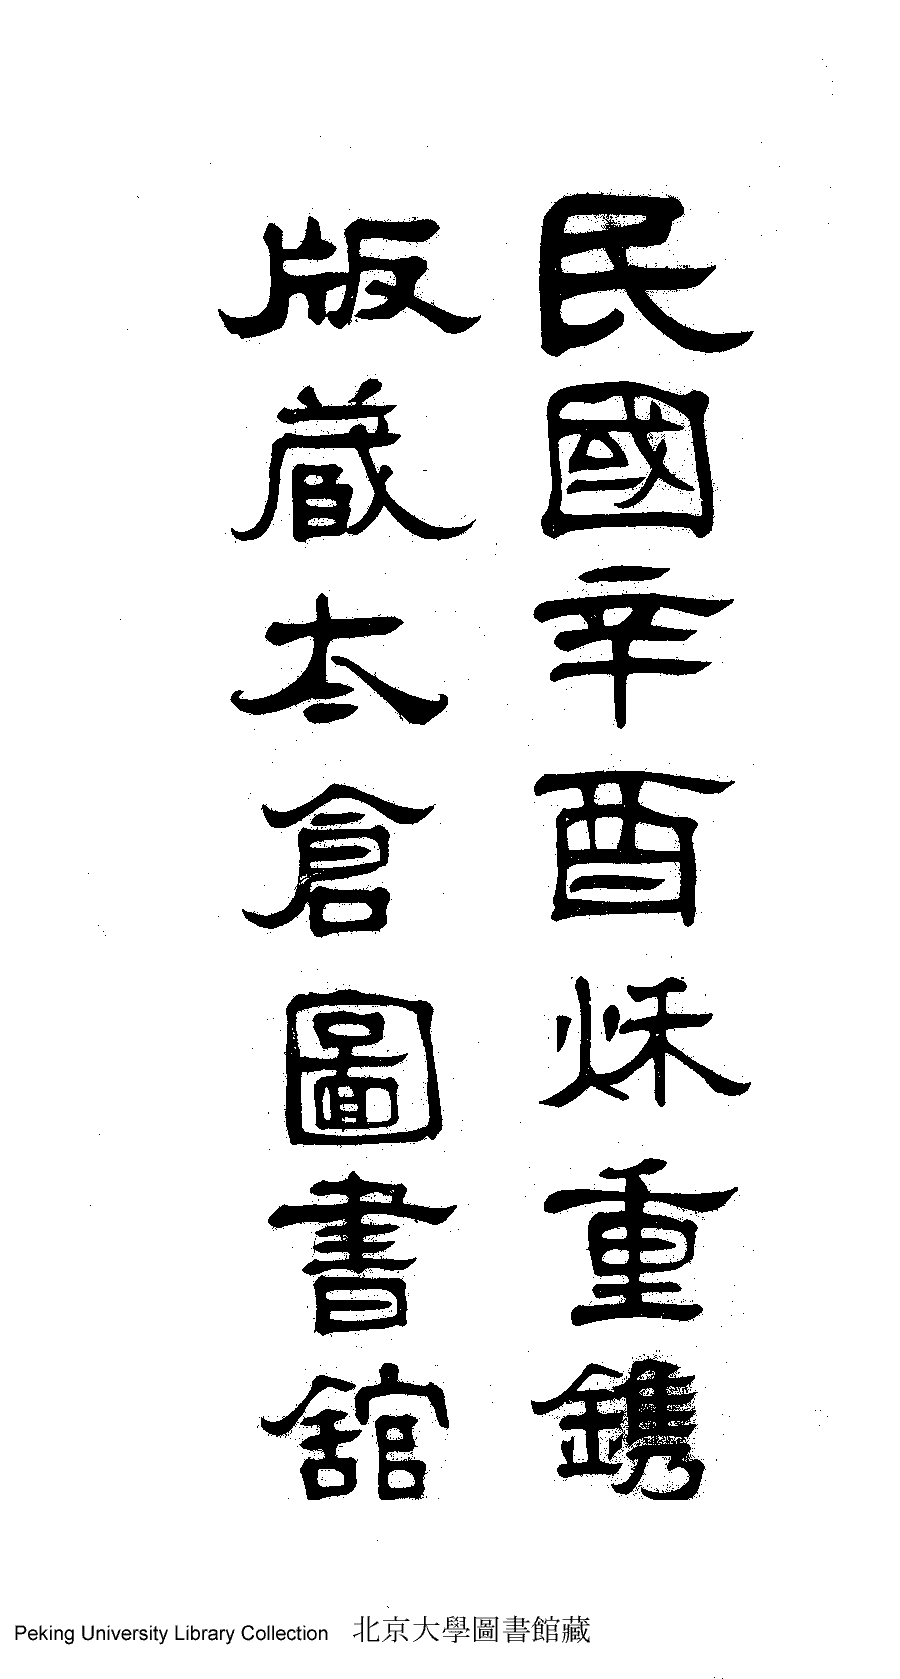 民國辛酉烁重鐫
版蔵太倉圖書舘
Peking University Library Collection 北京大學圖書館藏